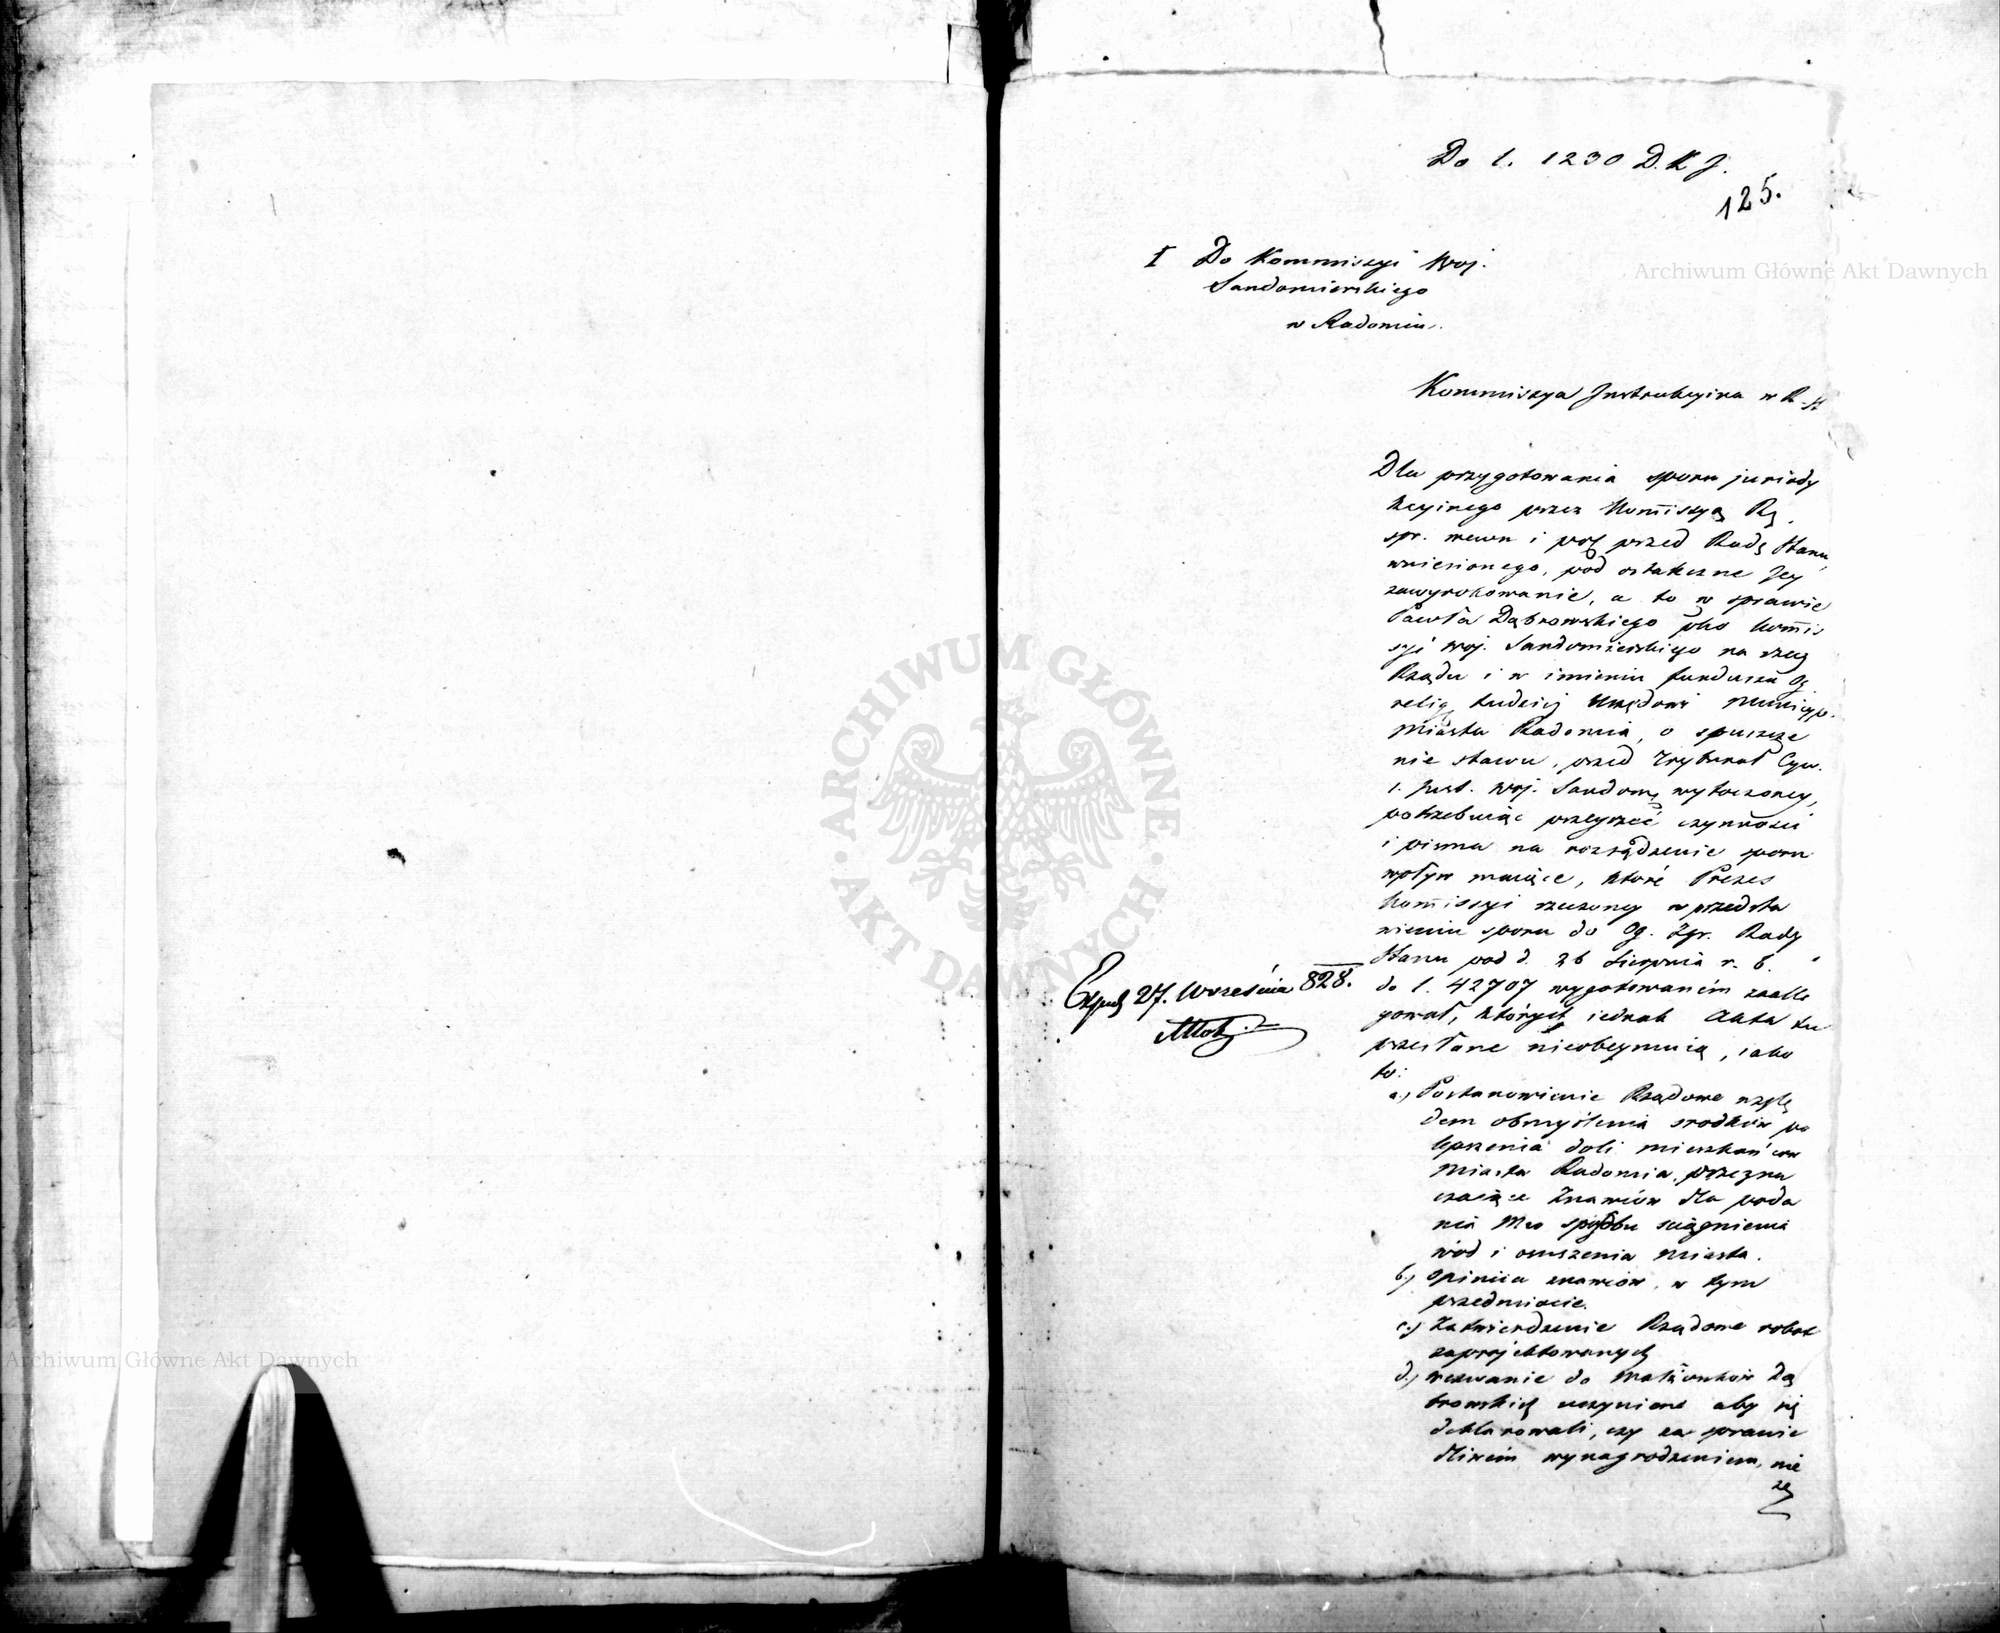 Do l. 1230 D.K.J.
125.
I Do Kommissyi Woj.
Sandomierskiego
w Radomiu.
Kommissya Instrukcyina w R. St
Dla przygotowania sporu jurisdy
kcyinego przez Kom̄issyą Rz.
spr. wewn i pol. przed Radę Stanu
wniesionego, pod ostateczne Jey
zawyrokowanie, a to w sprawie
Pawła Dąbrowskiego pko Kom̄is
syi woj. Sandomierskiego na rzecz
Rządu i w imieniu funduszu
relig tudzież Urzędowi Municyp.
Miasta Radomia, o spuszcze
nie stawu, przed Trybunał Cyw.
1. Inst. woj. Sandom. wytoczoney,
potrzebuiąc przeyrzeć czynności
i pisma na rozsądzenie sporu
wpływ maiące, które Prezes
Kom̄issyi rzeczoney w przedsta
wieniu sporu do Og. Zgr. Rady
Stanu pod d. 26 Sierpnia r. b.
do l. 42707 wygotowanem zaalle
gował, których iednak Akta tu
przesłane nieobeymuią, iako
to:
a.) Postanowienie Rządowe wzglę
dem obmyślenia srodków po
lepszenia doli mieszkańców
Miasta Radomia, przezna
czaiące Znawców dla poda
nia sposobu sciągnienia
wód i osuszenia miasta.
b.) Opiniia znawców w tym
przedmiocie.
c.) Zatwierdzenie Rządowe robot
zaproiektowanych
d.) wezwanie do małżonków Dą
browskich uczynione aby się
deklarowali, czy za sprawie
dliwem wynagrodzeniem, nie
ze
Exped 27. Września 828.